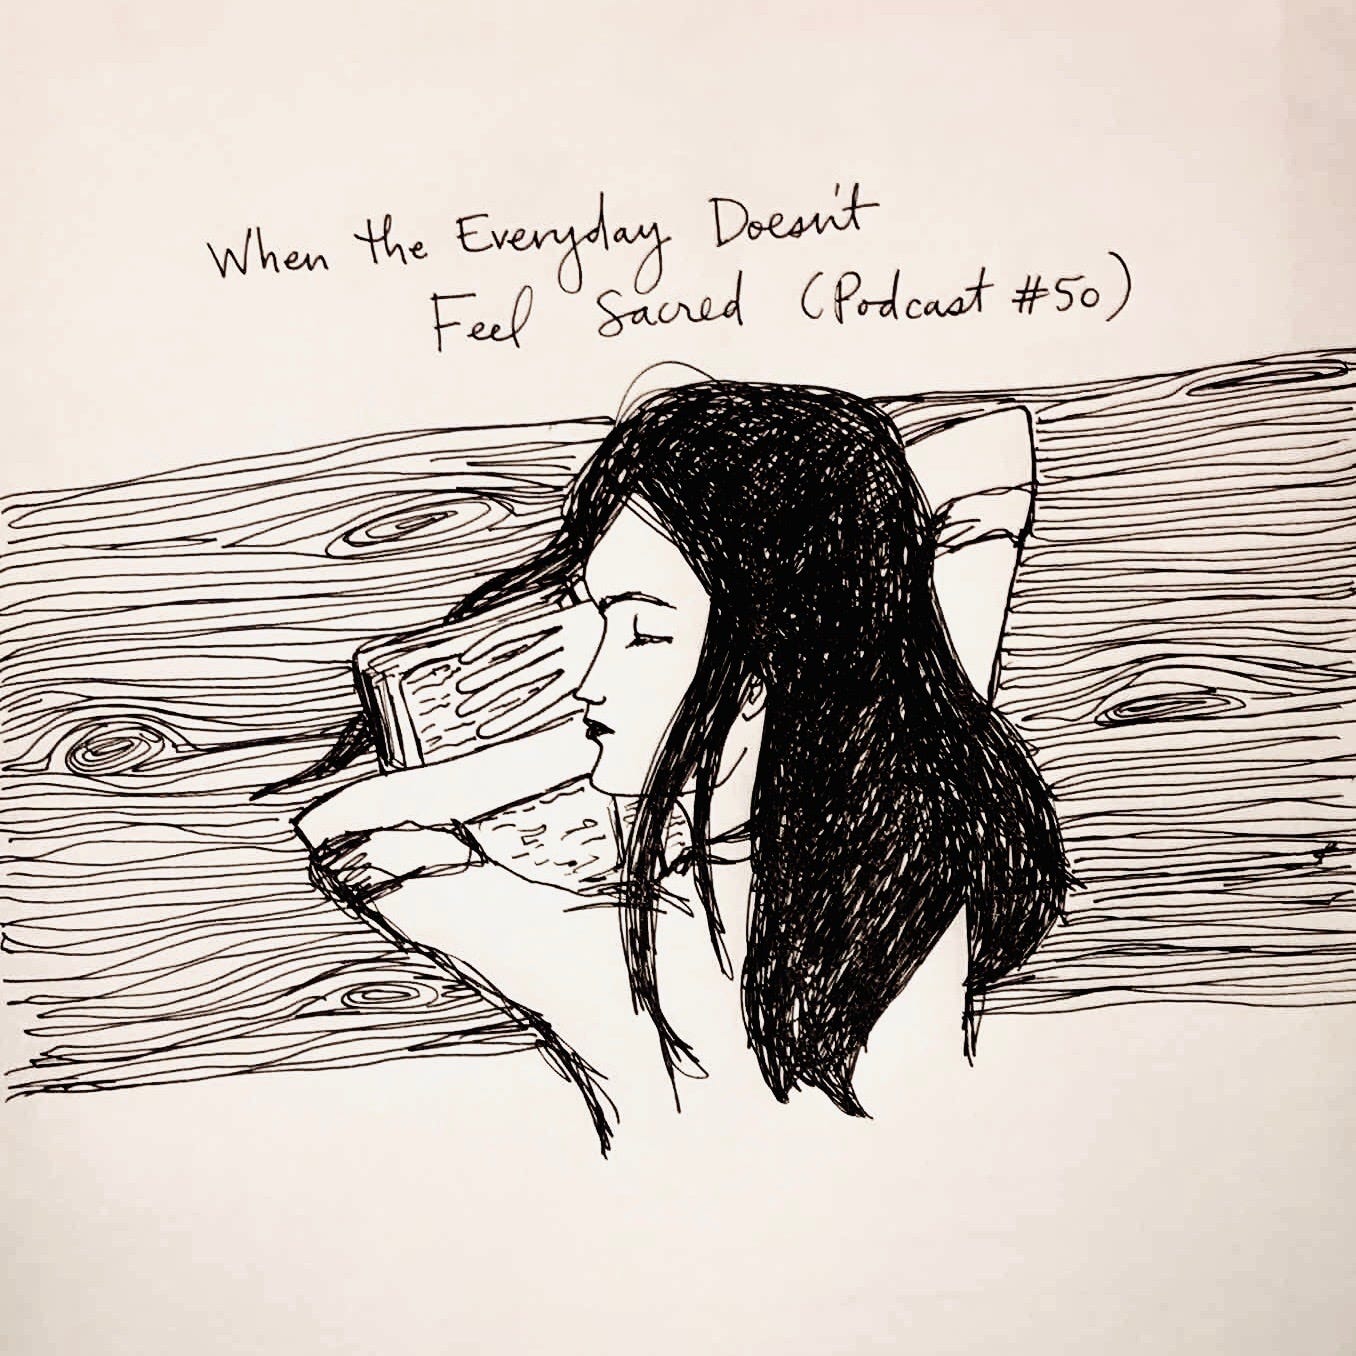 When the Everyday Doesn't
Feel Sacred (Podcast #50)